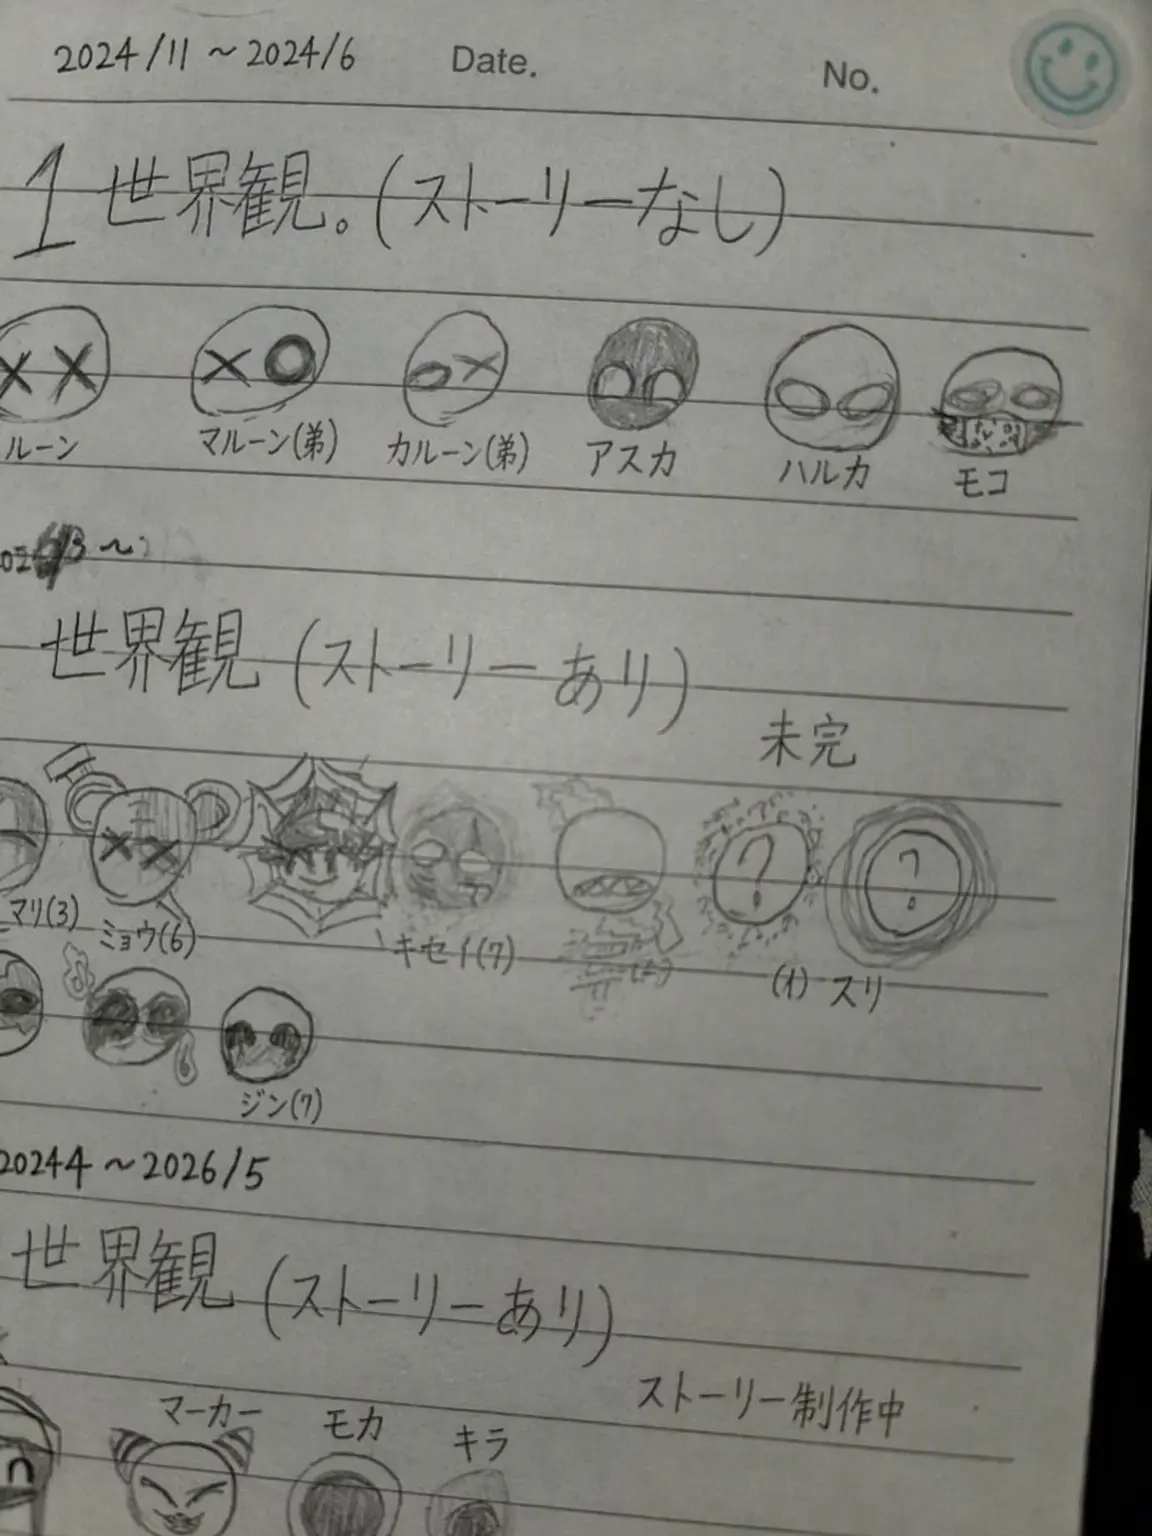 2024/11 ～2024/6 Date. No.
1 世界観。(ストーリーなし)
ルーン マルーン(弟) カルーン(弟) アスカ ハルカ モコ
世界観 (ストーリーあり)
未完
マリ(3) ミョウ(6) キセイ(7) (1) スリ
ジン(7)
20244 ～2026/5
世界観 (ストーリーあり)
ストーリー制作中
マーカー モカ キラ